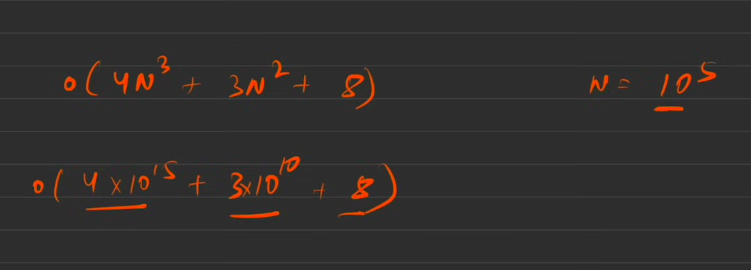 O(4N³ + 3N² + 8) N = 10⁵
O(4×10¹⁵ + 3×10¹⁰ + 8)